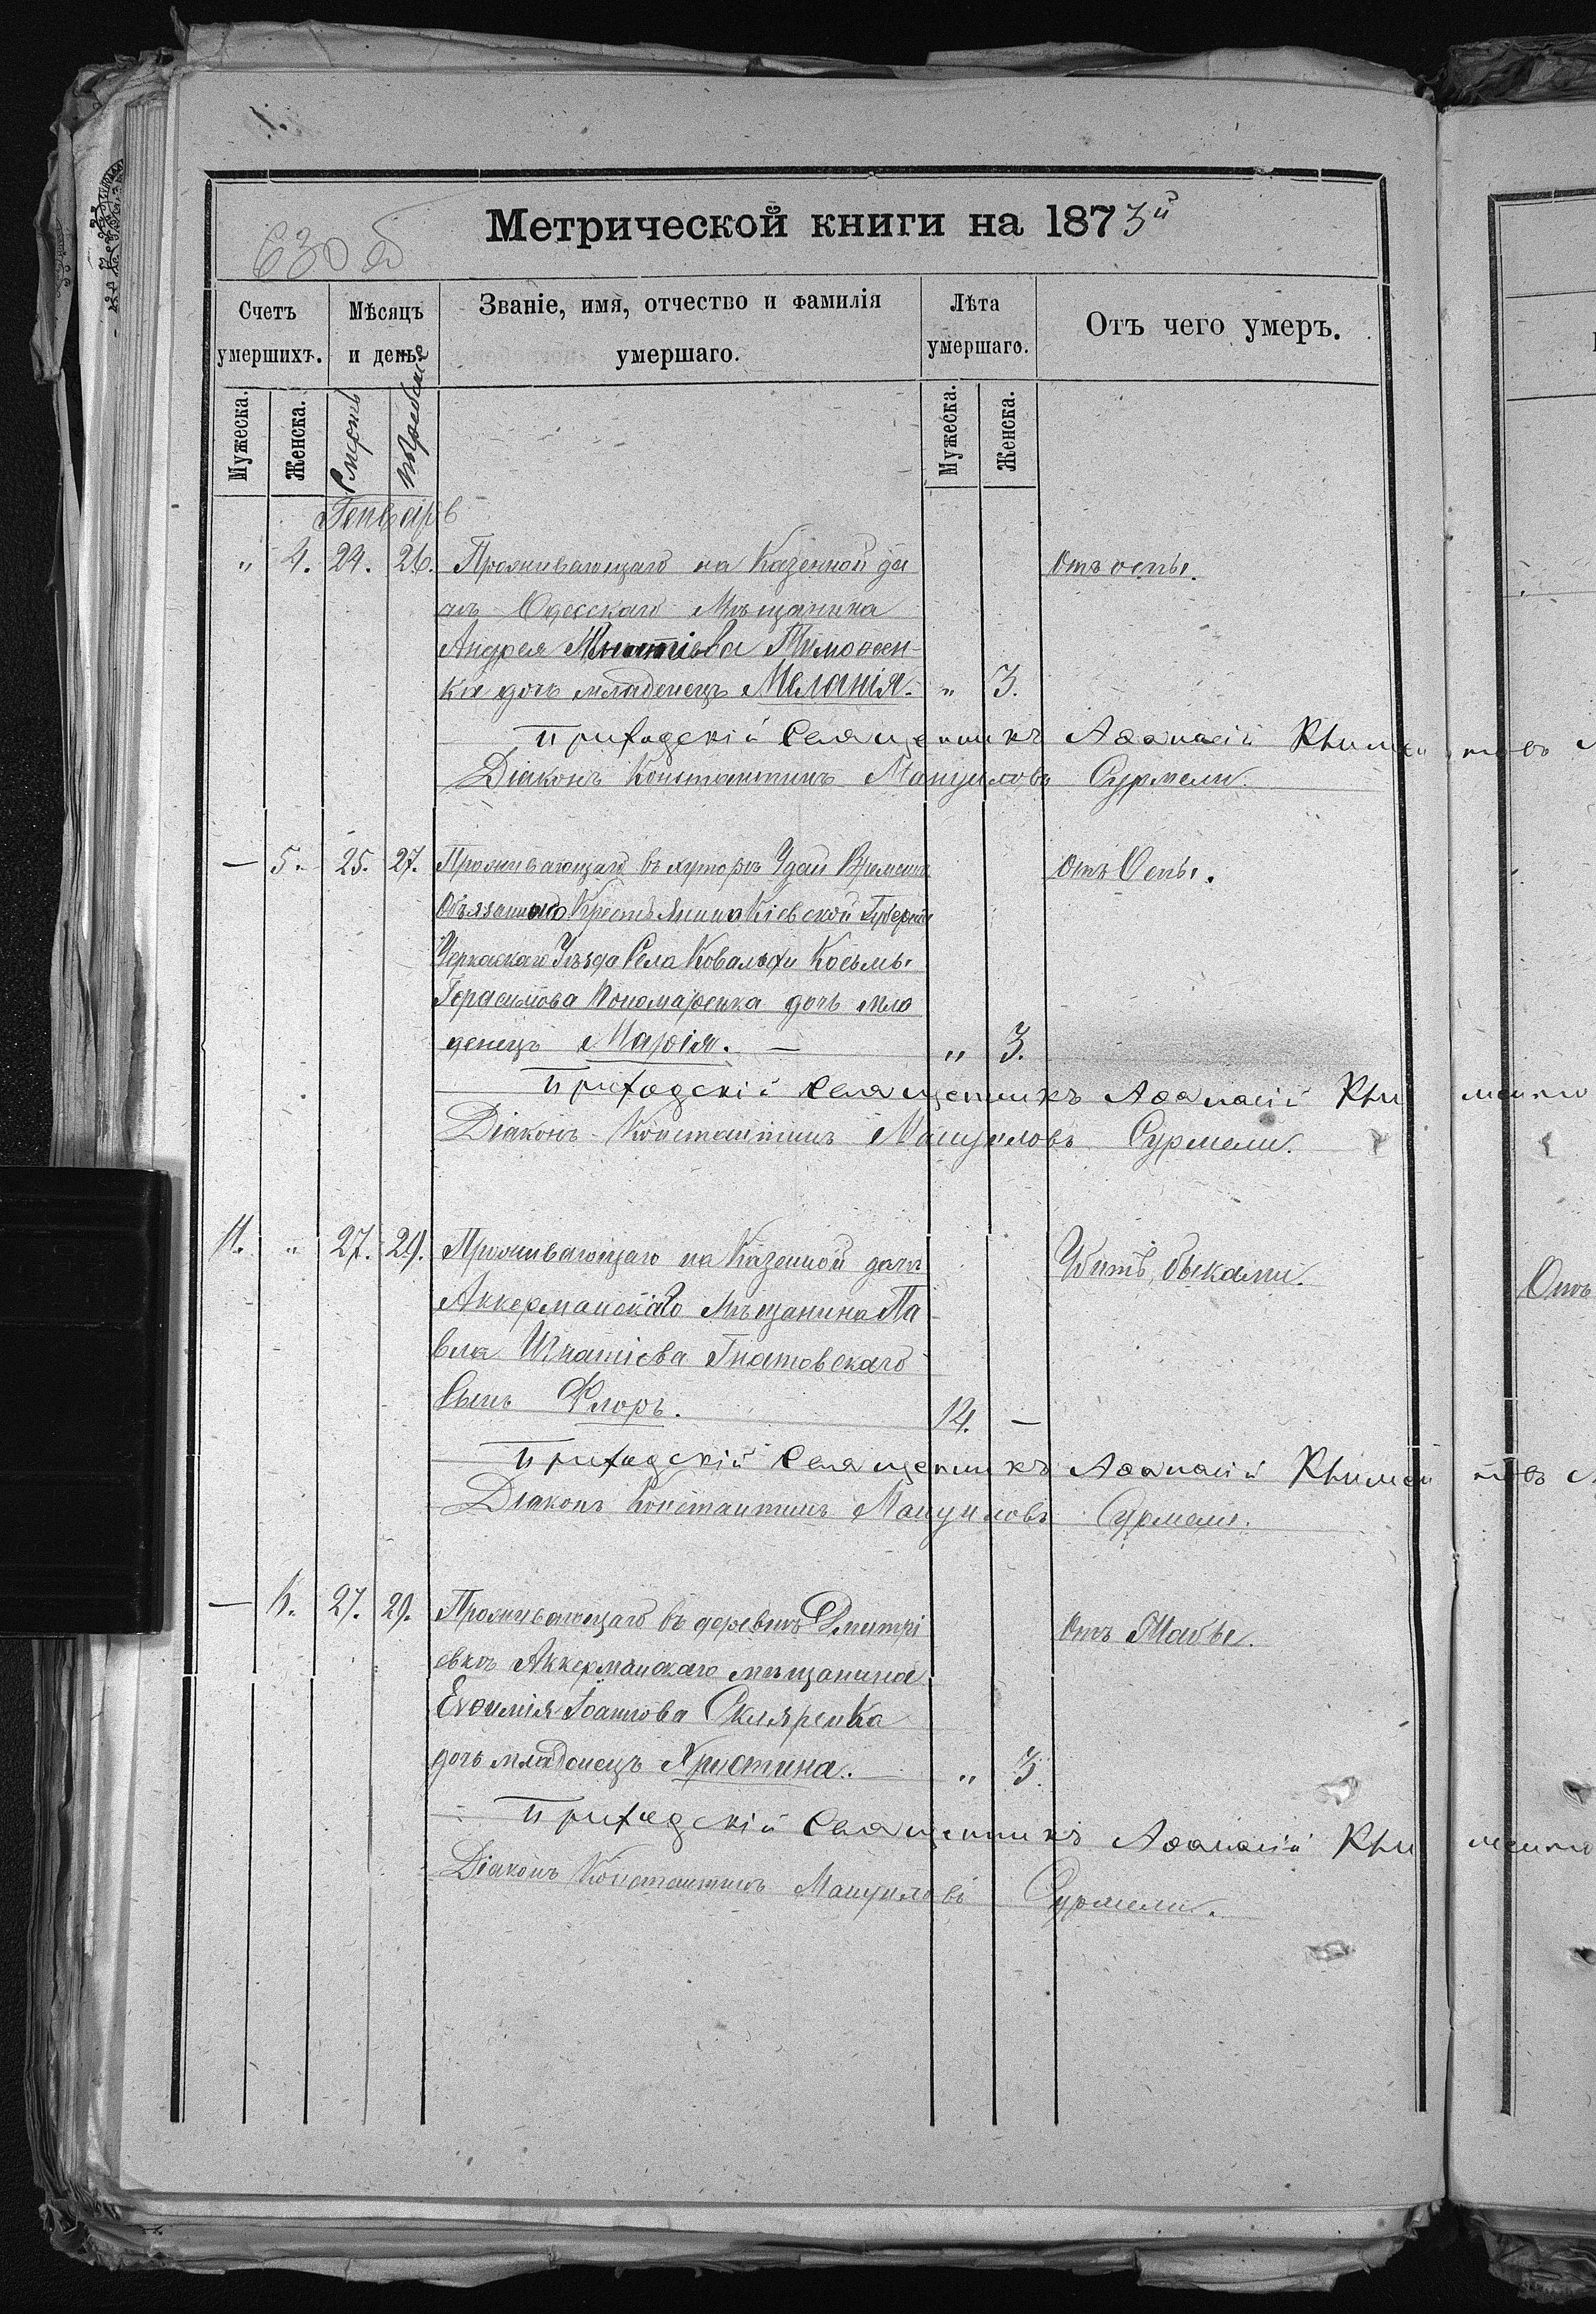 630 об
Метрической книги на 1873й
Счетъ умершихъ.
Мѣсяцъ и день.
Званіе, имя, отчество и фамилія умершаго.
Лѣта умершаго.
Отъ чего умеръ.
Мужеска.
Женска.
Смерть
погребенiе
Мужеска.
Женска.
Генварь
" 4. 24. 26. Проживающаго на Казенной да Отъ оспы.
чѣ Одесскаго Мѣщанина
Андрея Тимоѳеен-
ка дочь младенецъ Меланія. " 3.
Приходскій Священникъ Аѳанасій
Діаконъ Константинъ Мануиловъ Сурмели.
— 5. 25. 27. Проживающаго въ хуторѣ Удаи Времен. отъ Оспы.
Обязаннаго Крестьянина Кіевской Губерніи
Черкаскаго Уѣзда Села Ковалихи Косьмы
Герасимова Пономаренка дочь мла
денецъ Марія. — " 3.
Приходскій Священникъ Аѳанасій
Діаконъ Константинъ Мануиловъ Сурмели.
11. " 27. 29. Проживающаго на Казенной дачѣ Убитъ быками.
Аккерманскаго Мѣщанина Па
вла Игнатіева Гнатовскаго
Сынъ Флоръ. 14. —
Приходскій Священникъ Аѳанасій
Діаконъ Константинъ Мануиловъ Сурмели.
— 6. 27. 29. Проживающаго въ деревнѣ Дмитрі Отъ Жабы.
евкѣ Аккерманскаго мѣщанина
Евѳимія Іоаннова Скляренка
дочь младенецъ Христина. " 3.
Приходскій Священникъ Аѳанасій
Діаконъ Константинъ Мануиловъ Сурмели.